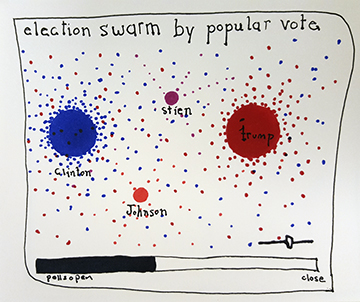 election swarm by popular vote
stien
trump
Clinton
Johnson
polls open
close